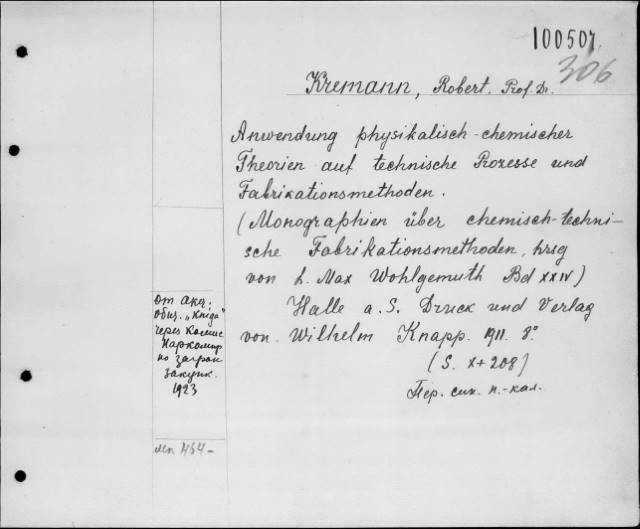 100507
306
Kremann, Robert. Prof. Dr.
Anwendung physikalisch-chemischer
Theorien auf technische Prozesse und
Fabrikationsmethoden.
(Monographien über chemisch-techni-
sche Fabrikationsmethoden, hrsg
von L. Max Wohlgemuth Bd XXIV)
Halle a. S. Druck und Verlag
von Wilhelm Knapp. 1911. 8°
(S. X+208)
Пер. син. п.-кал.
от акц.
общ. „Книга"
через Комис
Наркомпр
по загран
закупк.
1923
Мп 464-